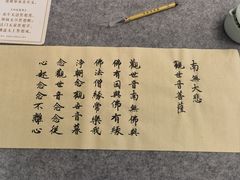 南無大悲
觀世音菩薩
觀世音南無佛與
佛有因與佛有緣
佛法僧緣常樂我
淨朝念觀世音暮
念觀世音念念從
心起念念不離心